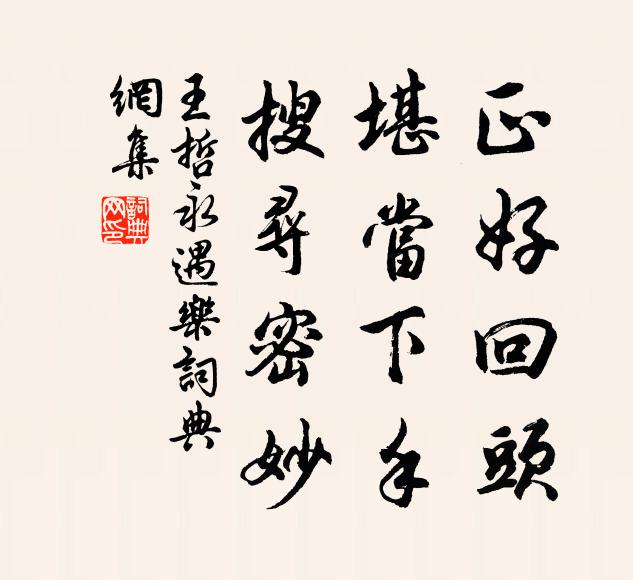 正好回頭
堪當下手
搜尋密妙
王哲永遇樂詞典
網集
詞典
网印